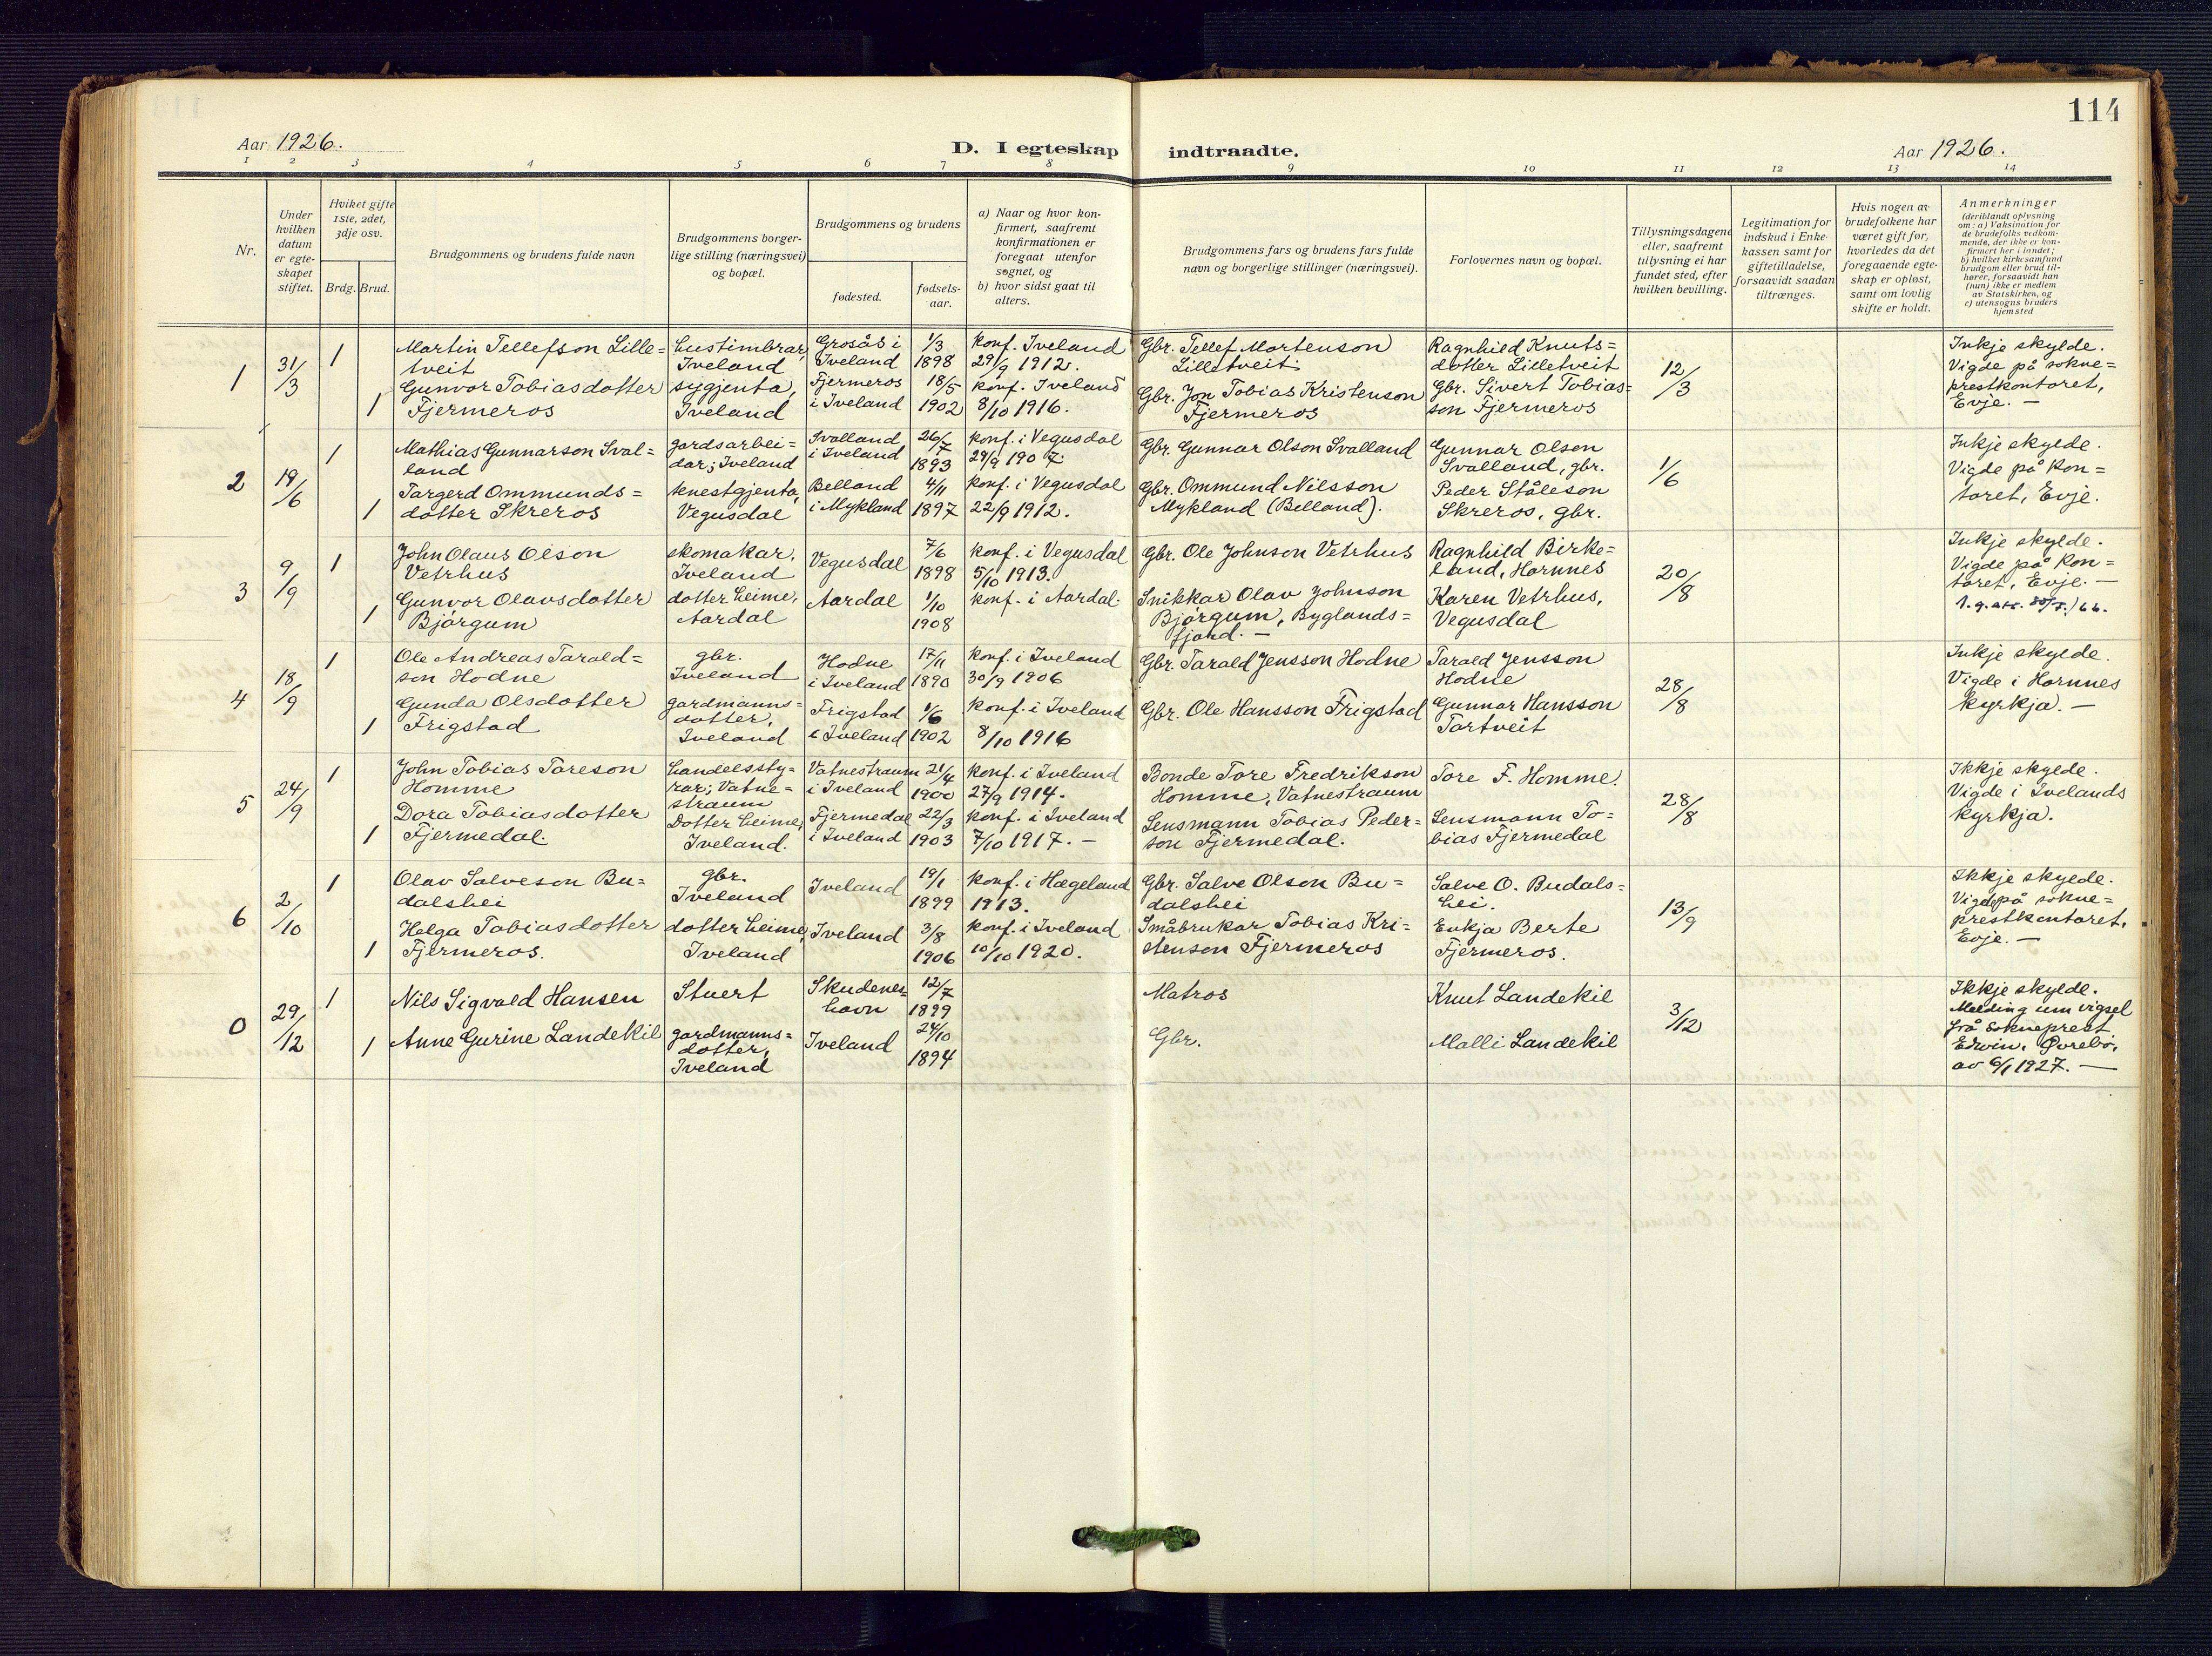 114
Aar 1926.
D. I egteskap indtraadte.
Aar 1926.
1 2 3 4 5 6 7 8 9 10 11 12 13 14
Nr.
Under hvilken datum er egteskapet stiftet.
Hviket gifte 1ste, 2det, 3dje osv.
Brdg. Brud.
Brudgommens og brudens fulde navn
Brudgommens borgerlige stilling (næringsvei) og bopæl.
Brudgommens og brudens
fødested.
fødselsaar.
a) Naar og hvor konfirmert, saafremt konfirmationen er foregaat utenfor sognet, og
b) hvor sidst gaat til alters.
Brudgommens fars og brudens fars fulde navn og borgerlige stillinger (næringsvei).
Forlovernes navn og bopæl.
Tillysningsdagene eller, saafremt tillysning ei har fundet sted, efter hvilken bevilling.
Legitimation for indskud i Enkekassen samt for giftetilladelse, forsaavidt saadan tiltrænges.
Hvis nogen av brudefolkene har været gift før, hvorledes da det foregaaende egteskap er opløst, samt om lovlig skifte er holdt.
Anmerkninger
(deriblandt oplysning om: a) Vaksination for de brudefolks vedkommende, der ikke er konfirmert her i landet; b) hvilket kirkesamfund brudgom eller brud tilhører, forsaavidt han (hun) ikke er medlem av Statskirken, og c) utensogns bruders hjemsted
1
31/3
1
Martin Tellefson Lille=
tveit
hustimbrar,
Iveland
Grosås i
Iveland
1/3
1898
konf. Iveland
29/9 1912.
Gbr. Tellef Mortenson
Lilletveit
Ragnhild Knuts=
dotter Lilletveit
12/3
Inkje skylde.
Vigde på sokne=
prestkontoret,
Evje. —
1
Gunvor Tobiasdotter
Fjermeros
sygjenta,
Iveland
Fjermeros
i Iveland
18/5
1902
konf. Iveland
8/10 1916.
Gbr. Jon Tobias Kristenson
Fjermeros
Gbr. Sivert Tobias=
son Fjermeros
2
19/6
1
Mathias Gunnarson Sval=
land
gardsarbei=
dar; Iveland
Svalland
i Iveland
26/7
1893
konf. i Vegusdal
29/9 1907.
Gbr. Gunnar Olson Svalland
Gunnar Olsen
Svalland, gbr.
1/6
Inkje skylde.
Vigde på kon=
toret, Evje.
1
Targerd Ommunds=
dotter Skreros
tenestgjenta,
Vegusdal
Belland
i Mykland
4/11
1897
konf. i Vegusdal
22/9 1912.
Gbr. Ommund Nilsson
Mykland (Belland).
Peder Ståleson
Skreros, gbr.
3
9/9
1
John Olaus Olson
Vetrhus
skomakar,
Iveland
Vegusdal
7/6
1898
konf. i Vegusdal
5/10 1913.
Gbr. Ole Johnson Vetrhus
Ragnhild Birke=
land, Hornnes
20/8
Inkje skylde.
Vigde på kon=
toret, Evje. —
1
Gunvor Olavsdotter
Bjørgum
dotter heime,
Aardal
Aardal
1/10
1908
konf. i Aardal.
Snikkar Olav Johnson
Bjørgum, Byglands=
fjord. —
Karen Vetrhus,
Vegusdal
4
18/9
1
Ole Andreas Tarald=
son Hodne
gbr.
Iveland
Hodne
i Iveland
17/11
1890
konf. i Iveland
30/9 1906
Gbr. Tarald Jensson Hodne
Tarald Jensson
Hodne
28/8
Inkje skylde.
Vigde i Hornnes
kyrkja. —
1
Gunda Olsdotter
Frigstad
gardmanns=
dotter,
Iveland
Frigstad
i Iveland
1/6
1902
konf. i Iveland
8/10 1916
Gbr. Ole Hansson Frigstad
Gunnar Hansson
Tortveit
5
24/9
1
John Tobias Toreson
Homme
handelssty=
rar; Vatne=
straum
Vatnestraum
i Iveland
21/4
1900
konf. i Iveland
27/9 1914.
Bonde Tore Fredrikson
Homme, Vatnestraum
Tore F. Homme.
28/8
Ikkje skylde.
Vigde i Ivelands
kyrkja.
1
Dora Tobiasdotter
Fjermedal
Dotter heime,
Iveland.
Fjermedal
i Iveland
22/3
1903
konf. i Iveland
7/10 1917. —
Lensmann Tobias Peder=
son Fjermedal.
Lensmann To=
bias Fjermedal
6
2/10
1
Olav Salveson Bu=
dalshei
gbr.
Iveland
Iveland
19/1
1899
konf. i Hægeland
1913.
Gbr. Salve Olson Bu=
dalshei
Salve O. Budals=
hei.
13/9
Ikkje skylde.
Vigde på sokne=
prestkontoret,
Evje. —
1
Helga Tobiasdotter
Fjermeros.
dotter heime,
Iveland
Iveland
3/8
1906
konf. i Iveland
10/10 1920.
Småbrukar Tobias Kri=
stenson Fjermeros
Enkja Berte
Fjermeros.
0
29/12
1
Nils Sigvald Hansen
Stuert
Skudenes=
havn
12/7
1899
Matros
Knut Landekil
3/12
Ikkje skylde.
Melding um vigsel
frå sokneprest
Edwin, Øvrebø,
av 6/1 1927. —
1
Anne Gurine Landekil
gardmanns=
dotter,
Iveland
Iveland
24/10
1894
Gbr.
Malli Landekil